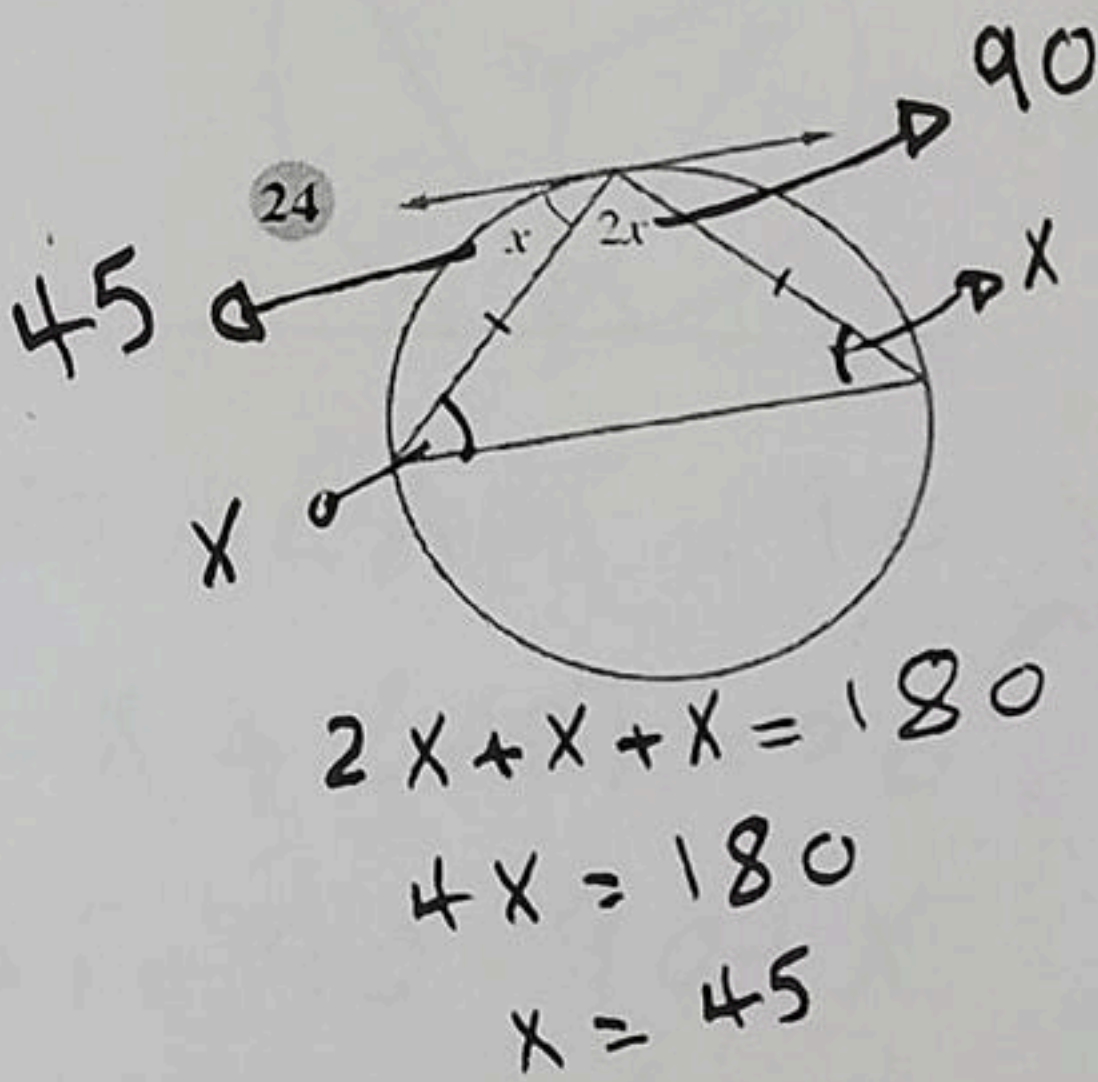 90
24
x
2x
45
X
X
2X+X+X=180
4X=180
X=45